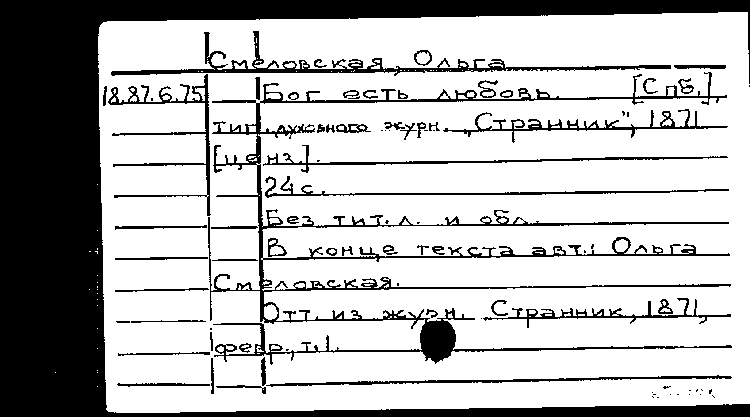 Смеловская, Ольга
18.87.6.75 Бог есть любовь. [Спб.],
тип. духовного журн. „Странник", 1871
[ценз].
24 с.
Без тит. л. и обл.
В конце текста авт.: Ольга
Смеловская.
Отт. из журн. Странник, 1871,
февр., т. 1.